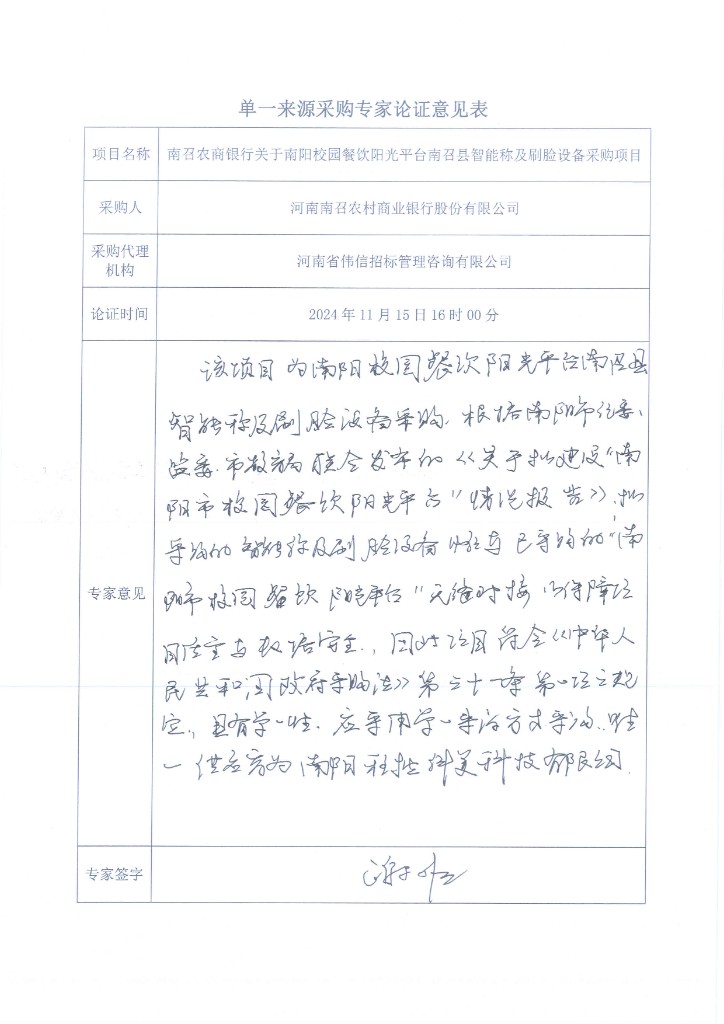 单一来源采购专家论证意见表
项目名称
南召农商银行关于南阳校园餐饮阳光平台南召县智能称及刷脸设备采购项目
采购人
河南南召农村商业银行股份有限公司
采购代理
机构
河南省伟信招标管理咨询有限公司
论证时间
2024年11月15日16时00分
专家意见
该项目为南阳校园餐饮阳光平台南召县
智能称及刷脸设备采购，根据南阳市纪委、
监委、市教育局联合发布的《关于拟建设“南
阳市校园餐饮阳光平台”情况报告》，拟
采购的智能称及刷脸设备必须与已采购的“南
阳市校园餐饮阳光平台”无缝对接，以保障项
目质量与数据安全，因此项目符合《中华人
民共和国政府采购法》第三十一条第一项之规
定，具有单一性，应采用单一来源方式采购，唯
一供应商为南阳科美科技有限公司
专家签字